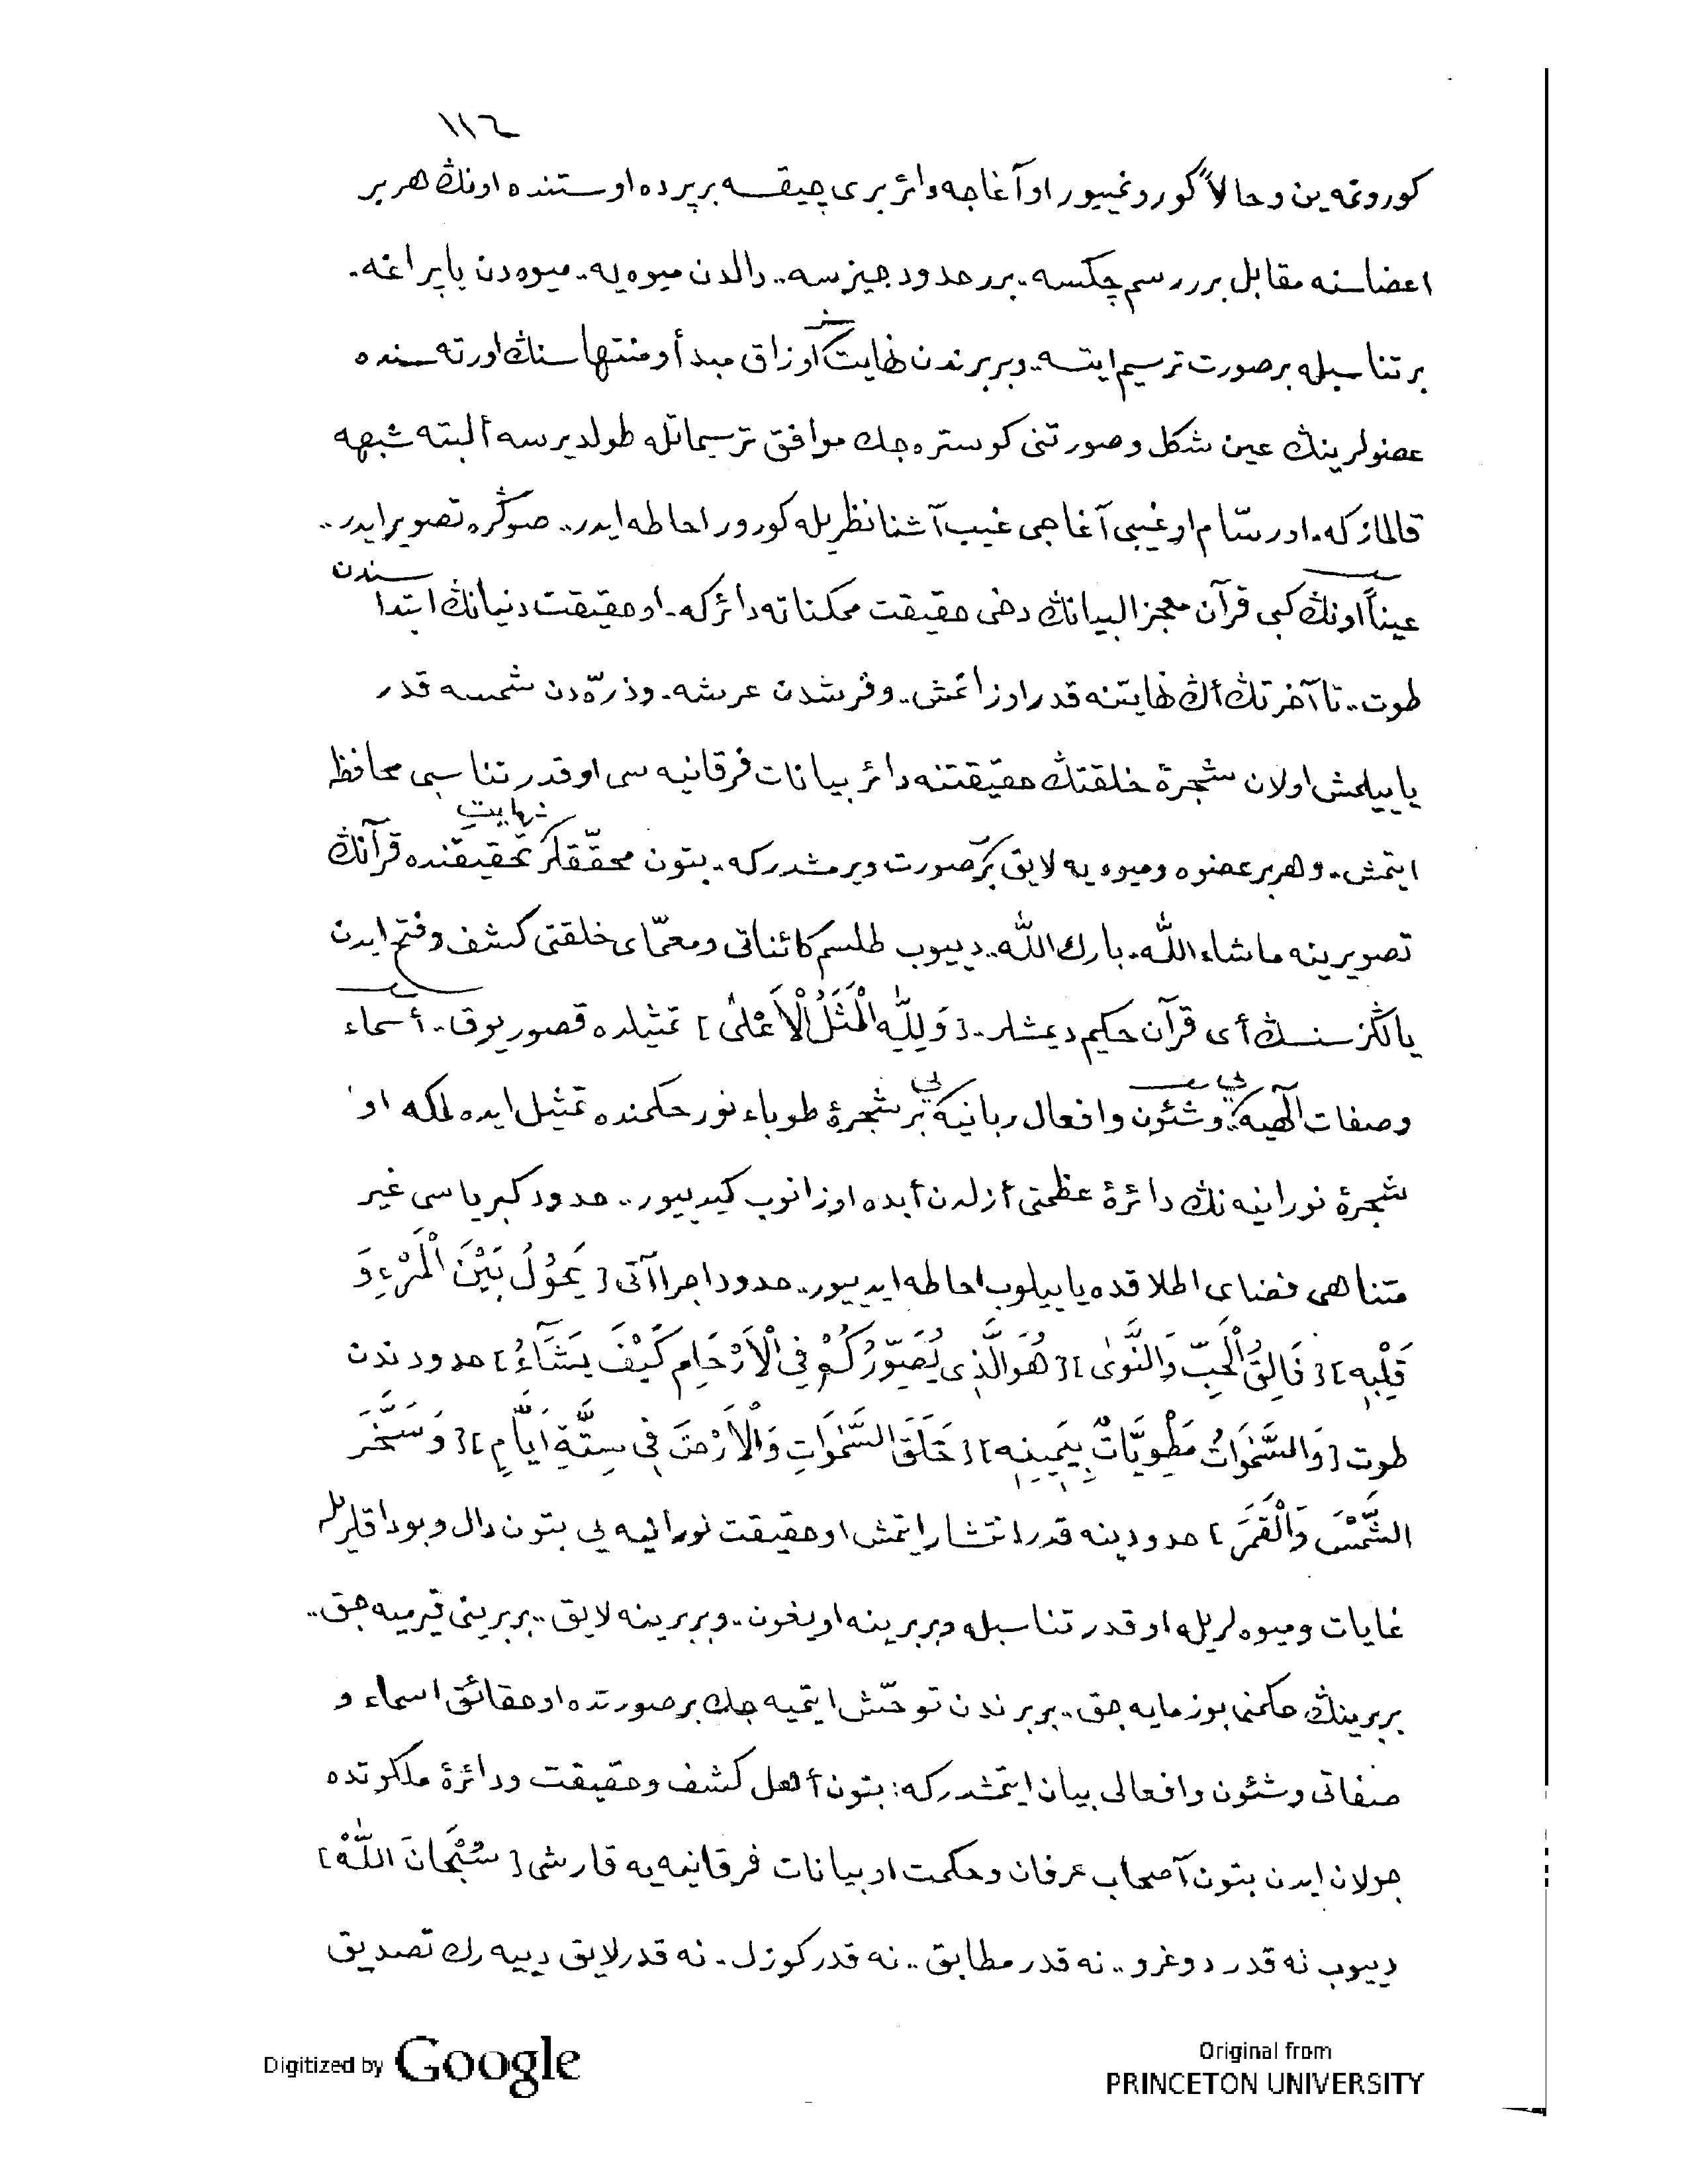 ١١٦
كورونمه‌ين و حالاً كورونميور او آغاجه دائر بری چيقسه بر پرده اوستنده اونڭ هر بر
اعضاسنه مقابل برر رسم چكسه. برر حدود چيزسه.. دالدن ميوه‌يه.. ميوه‌دن ياپراغه.
بر تناسبله بر صورت ترسيم ايتسه.. و بربرندن نهايتسز اوزاق مبدأ و منتهاسنڭ اورته‌سنده
عضولرينڭ عين شكل و صورتنی كوستره‌جك موافق ترسيماتله طولديرسه ألبته شبهه
قالماز كه. او رسّام او غيبی آغاجی غيب آشنا نظريله كورور احاطه ايدر.. صوڭره تصوير ايدر..
عيناً اونڭ كبی قرآن معجز البيانڭ دخی حقيقت ممكناته دائر كه. او حقيقت دنيانڭ ابتداسندن
طوت.. تا آخرتڭ أڭ نهايتنه قدر اوزانمش.. و فرشدن عرشه. و ذرّه‌دن شمسه قدر
ياييلمش اولان شجرۀ خلقتڭ حقيقتنه دائر بيانات فرقانيه‌سی او قدر تناسبی محافظه
ايتمش.. و هر بر عضوه و ميوه‌يه لايق بر صورت ويرمشدر كه. بتون محقّقلر نهايت تحقيقنده قرآنڭ
تصويرينه ماشاء اللّٰه. بارك اللّٰه.. دييوب طلسم كائناتی و معمّای خلقتی كشف و فتح ايدن
يالڭز سنسڭ أی قرآن حكيم ديمشلر.. [وَلِلّٰهِ الْمَثَلُ الْاَعْلٰى] تمثيلده قصور يوق.. أسماء
و صفات الٓهيه‌يی و شئون و افعال ربانيه‌يی بر شجرۀ طوباء نور حكمنده تمثيل ايده‌لم كه او
شجرۀ نورانيه‌نڭ دائرۀ عظمتی أزلدن أبده اوزانوب كيدييور.. حدود كبرياسی غير
متناهی فضای اطلاقده ياييلوب احاطه ايدييور.. حدود اجراآتی [يَحُولُ بَيْنَ الْمَرْءِ وَ
قَلْبِهِ] [فَالِقُ الْحَبِّ وَالنَّوٰى] [هُوَ الَّذِى يُصَوِّرُكُمْ فِى الْاَرْحَامِ كَيْفَ يَشَٓاءُ] حدودندن
طوت [وَالسَّمٰوَاتُ مَطْوِيَّاتٌ بِيَمِينِهِ] [خَلَقَ السَّمٰوَاتِ وَالْاَرْضَ فِى سِتَّةِ اَيَّامٍ] [وَسَخَّرَ
الشَّمْسَ وَالْقَمَرَ] حدودينه قدر انتشار ايتمش او حقيقت نورانيه‌يی بتون دال و بوداقلريله
غايات و ميوه‌لريله او قدر تناسبله و بربرينه اويغون.. و بربرينه لايق.. بربرينی قيرميه‌جق..
بربرينڭ حكمنی بوزمايه‌جق.. بربرندن توحّش ايتميه‌جك بر صورتده او حقائق اسماء و
صفاتی و شئون و افعالی بيان ايتمشدر كه: بتون أهل كشف و حقيقت و دائرۀ ملكوتده
جولان ايدن بتون أصحاب عرفان و حكمت او بيانات فرقانيه‌يه قارشی [سُبْحَانَ اللّٰهْ]
دييوب نه قدر دوغرو.. نه قدر مطابق.. نه قدر كوزل. نه قدر لايق دييه‌رك تصديق
Digitized by Google
Original from
PRINCETON UNIVERSITY